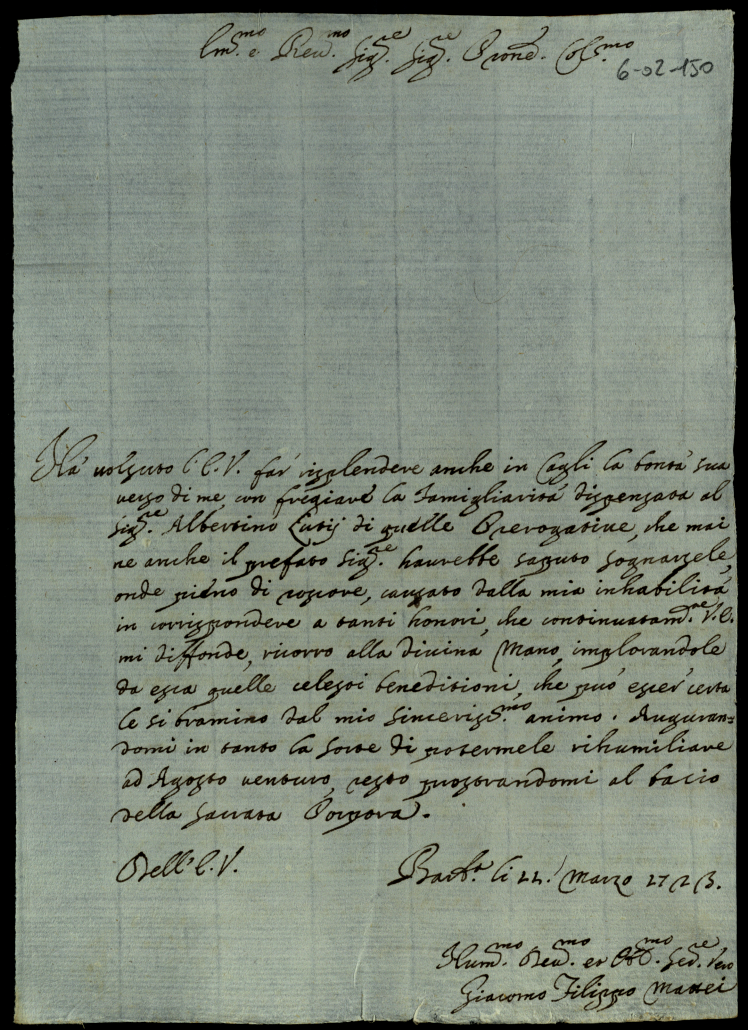 Em.mo e Reu.mo Sig.re Sig.re Prone. Col.mo
6-02-150
Hà uolsuto l'E.V. far risplendere anche in Cagli la bontà sua
uerso di me, con fregiare la famigliarità dispensata al
Sig.re Albertino Lutij di quelle Prerogatiue, che mai
ne anche il prefato Sig.re haurebbe saputo sognarsele,
onde pieno di rossore, causato dalla mia inhabilità
in corrispondere a tanti honori, che continuatam.te V.E.
mi diffonde, ricorro alla diuina Mano, implorandole
da essa quelle celesti beneditioni, che può esser certa
le si bramino dal mio sinceriss.mo animo. Auguran=
domi in tanto la sorte di potermele rihumiliare
ad Agosto uenturo, resto prostrandomi al bacio
della sacrata Porpora.
Dell'E.V.
Barb.a li 22 Marzo 1723.
Hum.mo Deu.mo et Obl.mo Ser.re Vero
Giacomo Filippo Mattei